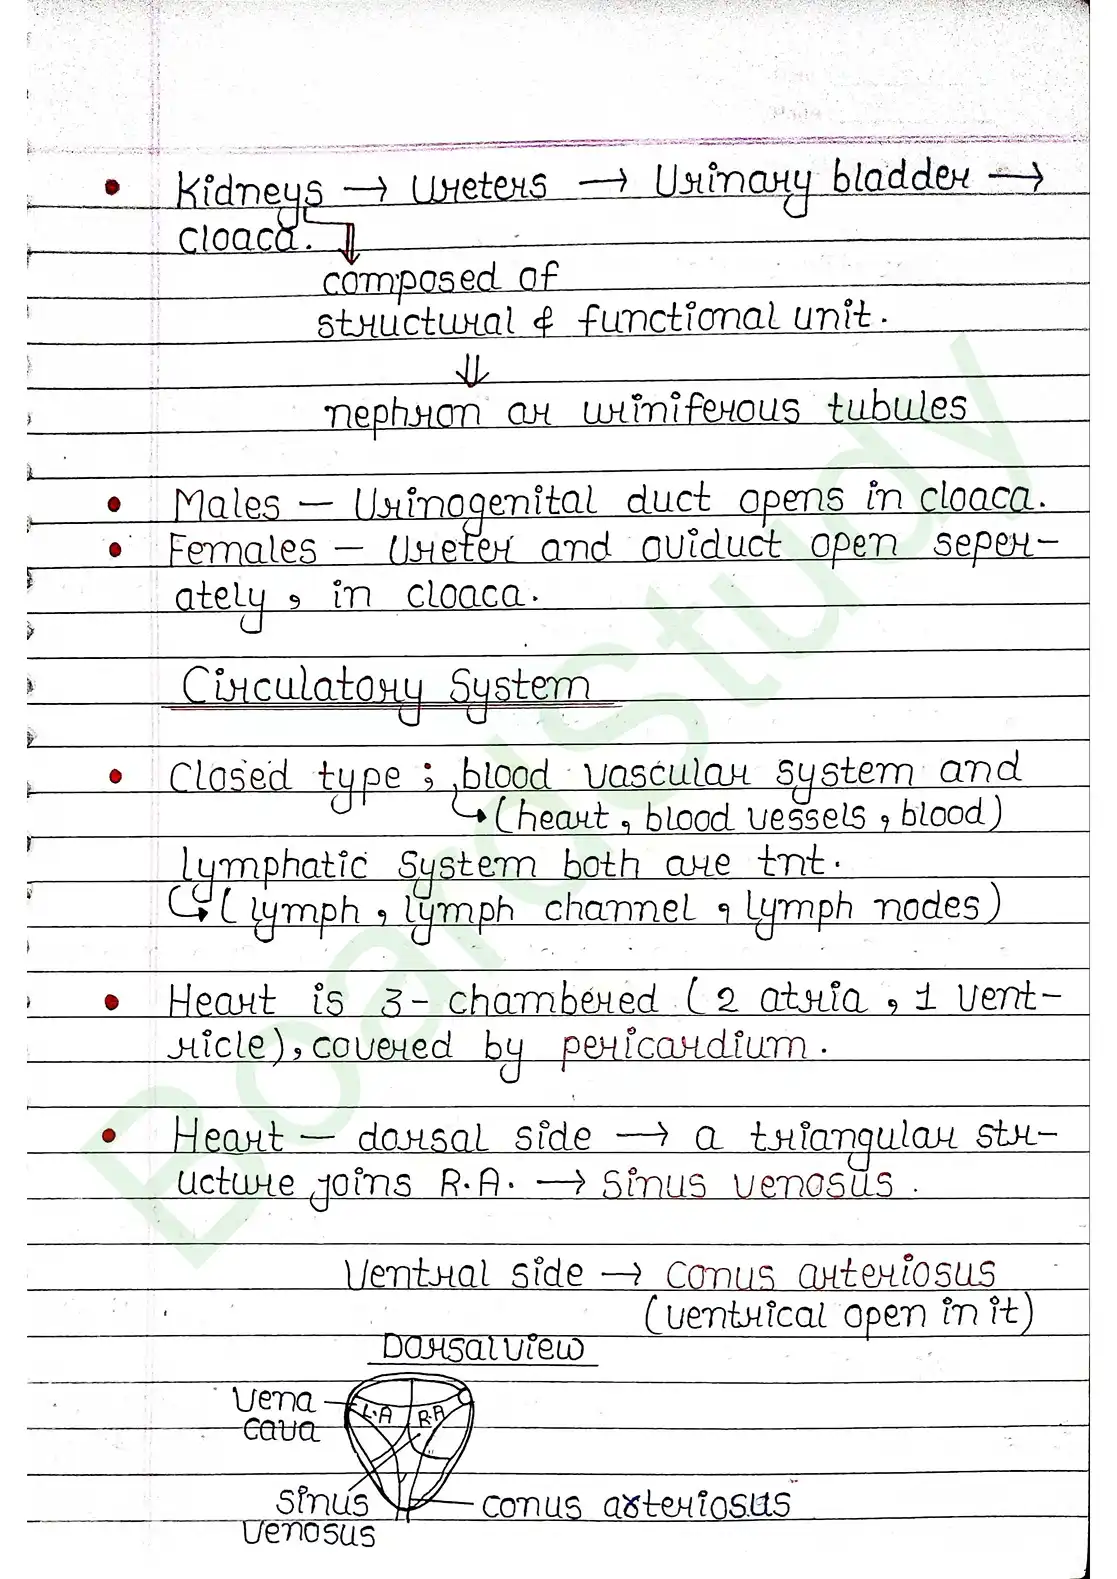 • Kidneys → Ureters → Urinary bladder →
cloaca.
composed of
structural & functional unit.
⇓
nephron or uriniferous tubules
• Males — Urinogenital duct opens in cloaca.
• Females — Ureter and oviduct open seper-
ately, in cloaca.
Circulatory System
• Closed type ; blood vascular system and
↳ (heart, blood vessels, blood)
lymphatic system both are tnt.
↳ (lymph, lymph channel, lymph nodes)
• Heart is 3-chambered (2 atria, 1 vent-
ricle), covered by pericardium.
• Heart — dorsal side → a triangular str-
ucture joins R.A. → sinus venosus.
Ventral side → conus arteriosus
(ventrical open in it)
Dorsal view
Vena
cava
L.A R.A
sinus
venosus
conus arteriosus
BoardStudy